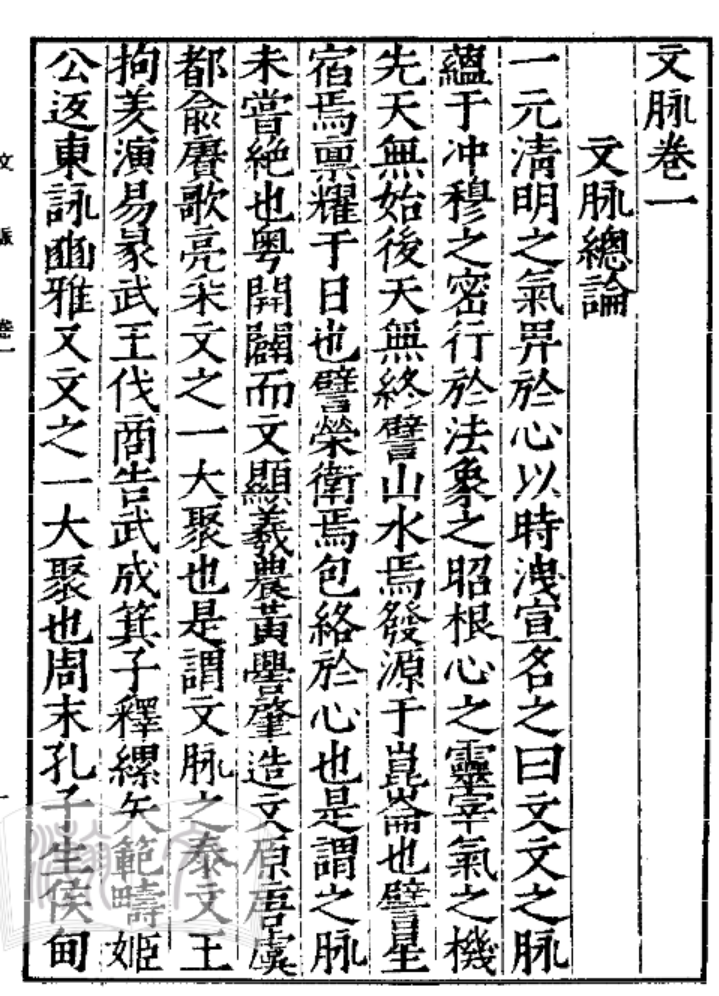 文脉卷一
文脉總論
一元淸明之氣畀於心以時洩宣名之曰文文之脉
蘊于冲穆之密行於法象之昭根心之靈宰氣之機
先天無始後天無終譬山水焉發源于崑崙也譬星
宿焉禀耀于日也譬榮衛焉包絡於心也是謂之脉
未嘗絶也粤開闢而文顯羲農黃嚳肇造文原吾虞
都兪賡歌亮采文之一大聚也是謂文脉之泰文王
拘羑演易彖武王伐商告武成箕子釋縲矢範疇姬
公返東詠豳雅又文之一大聚也周末孔子生侯甸
文 脈 卷一 一